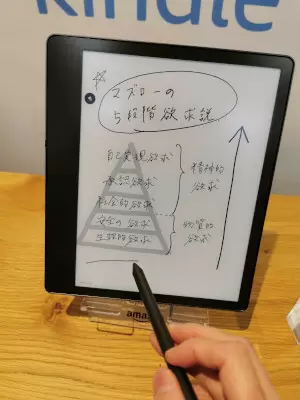 kindle
マズローの
5段階欲求説
自己実現欲求
承認欲求
社会的欲求
安全の欲求
生理的欲求
精神的
欲求
物質的
欲求
amaz